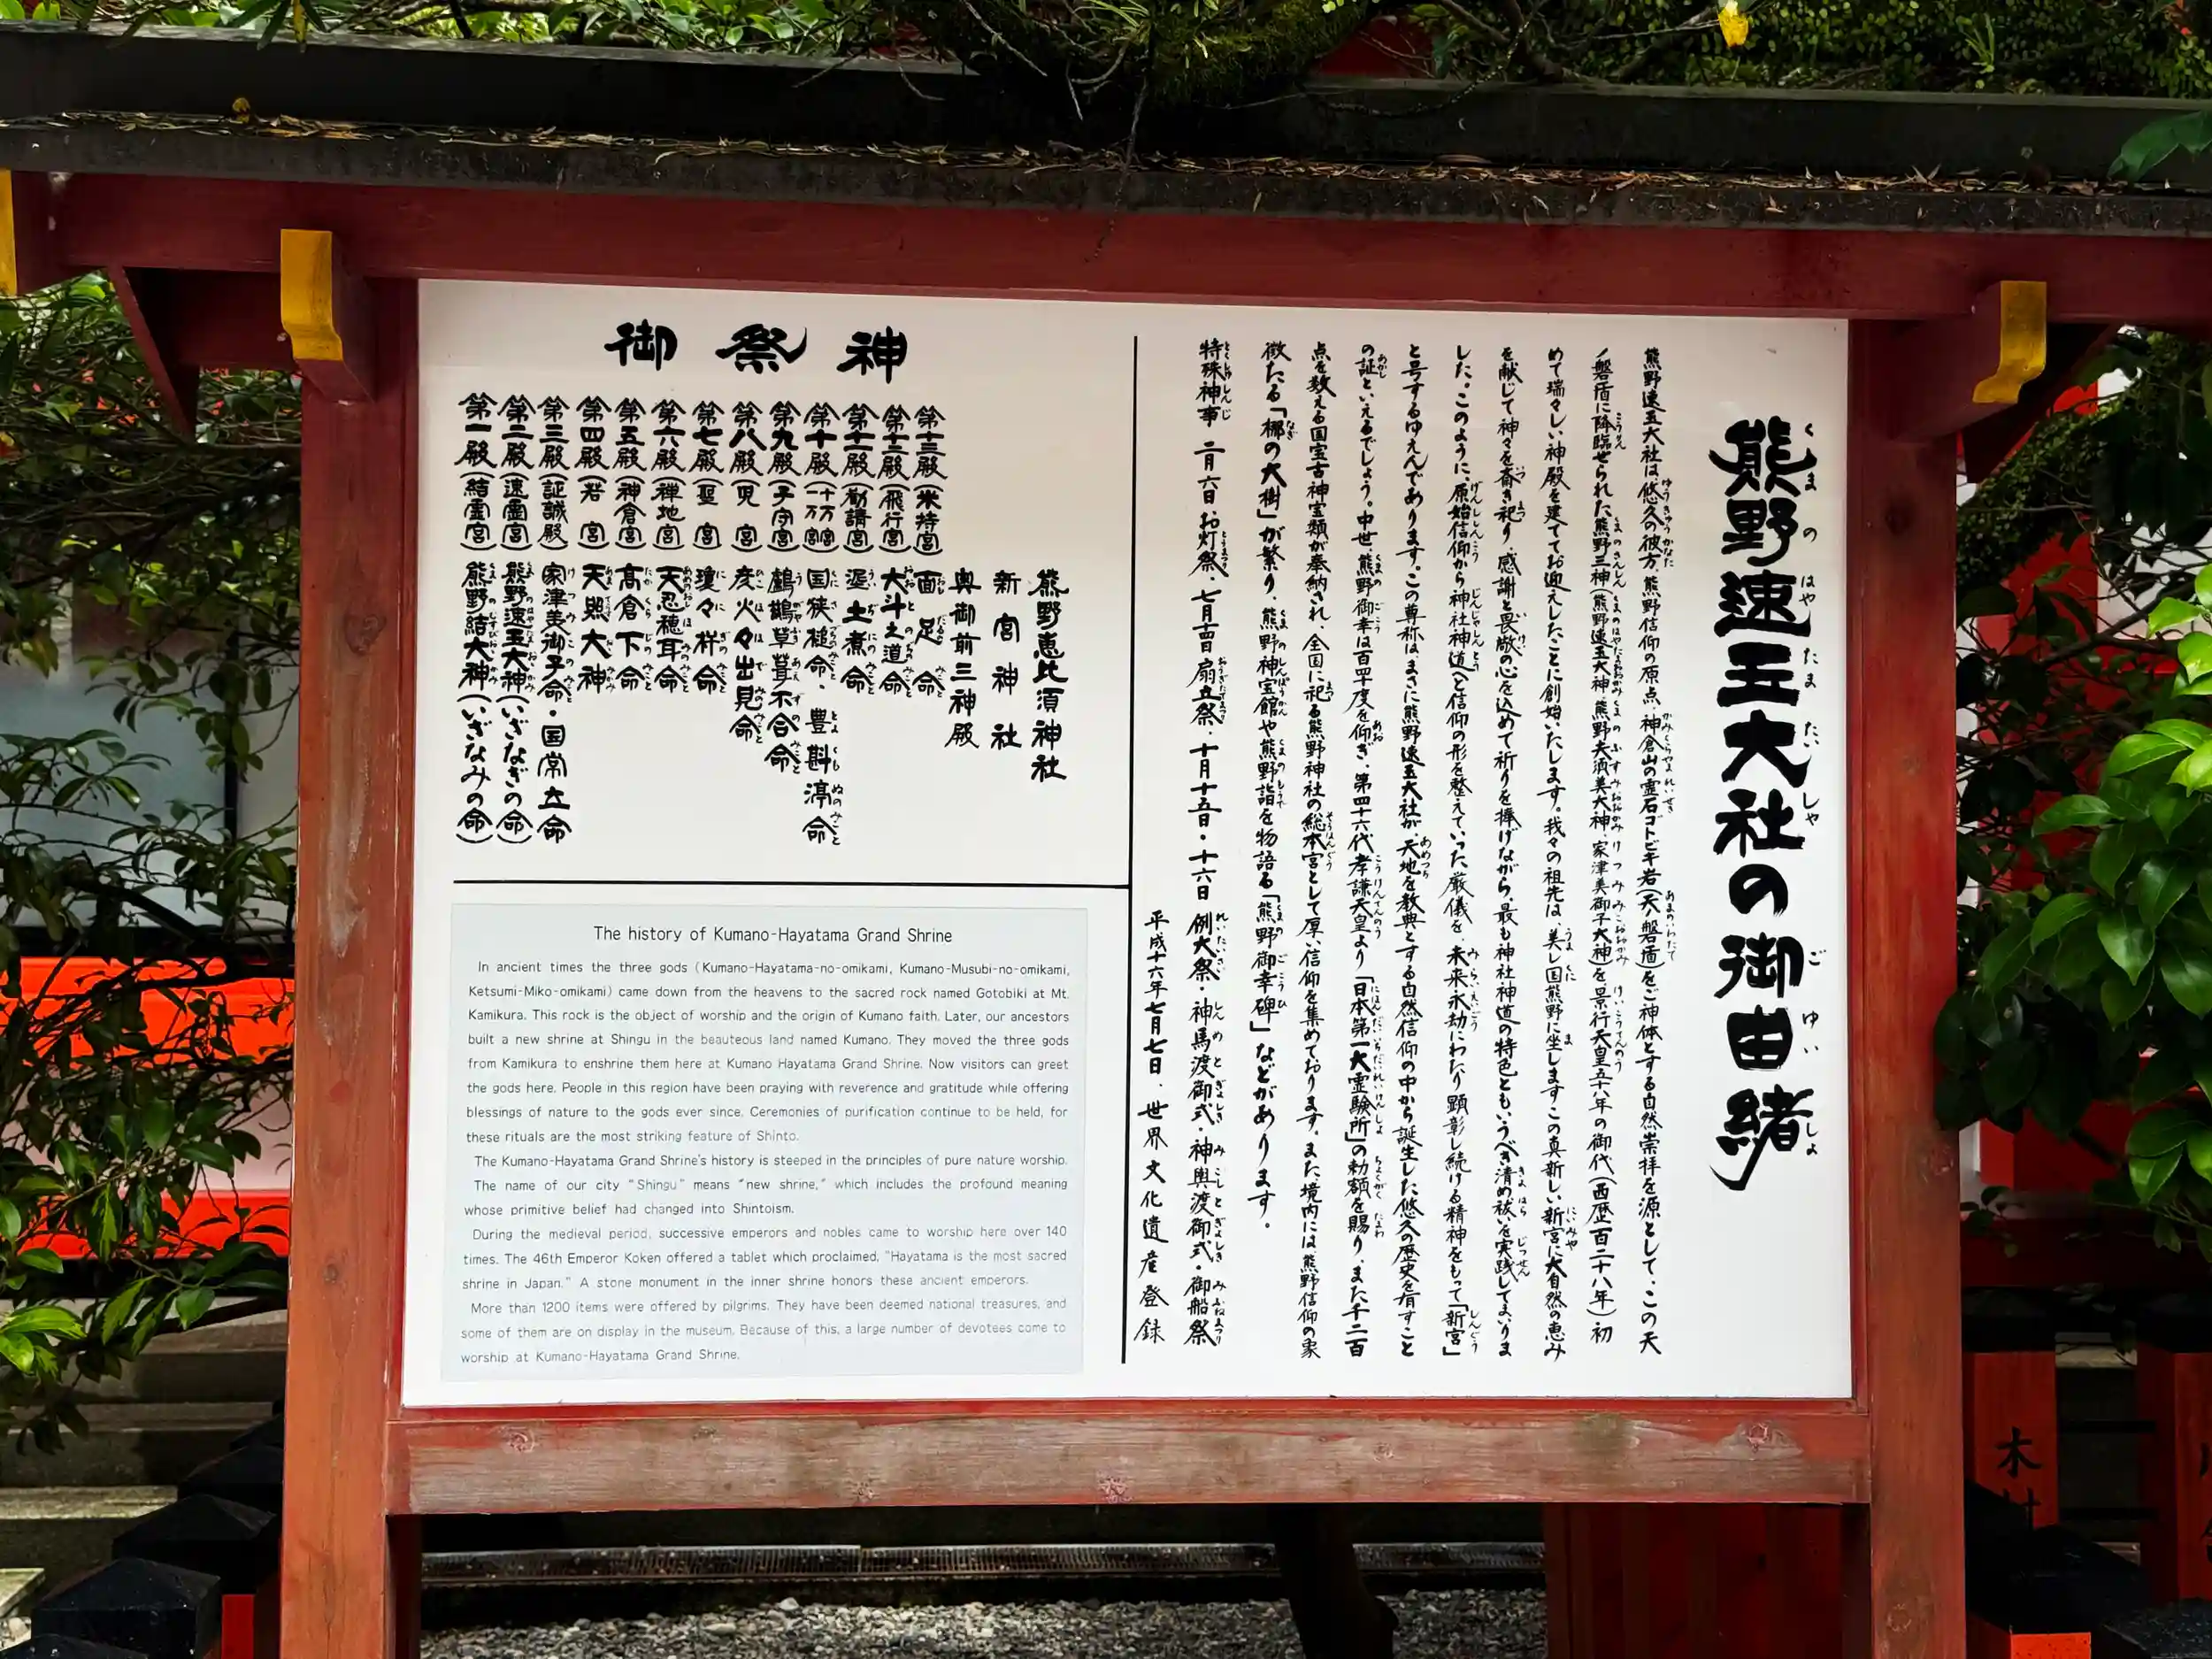 熊野速玉大社の御由緒
熊野速玉大社は、悠久の彼方、熊野信仰の原点、神倉山の霊石ゴトビキ岩(天磐盾)をご神体とする自然崇拝を源として、この天
ノ磐盾に降臨せられた熊野三神(熊野速玉大神・熊野夫須美大神・家津美御子大神)を景行天皇五十八年の御代(西歴百二十八年)初
めて瑞々しい神殿を建ててお迎えしたことに創始いたします。我々の祖先は、美し国熊野に坐しますこの真新しい新宮に大自然の恵み
を献じて神々を斎き祀り、感謝と畏敬の心を込めて祈りを捧げながら、最も神社神道の特色ともいうべき清め祓いを実践してまいりま
した。このように、原始信仰から神社神道へと信仰の形を整えていった厳儀を、未来永劫にわたり顕彰し続ける精神をもって「新宮」
と号するゆえんであります。この尊称はまさに熊野速玉大社が、天地を教典とする自然信仰の中から誕生した悠久の歴史を有すこと
の証といえるでしょう。中世、熊野御幸は百四十度を仰ぎ、第四十六代孝謙天皇より「日本第一大霊験所」の勅額を賜り、また千二百
点を数える国宝古神宝類が奉納され、全国に祀る熊野神社の総本宮として厚い信仰を集めております。また、境内には熊野信仰の象
徴たる「梛の大樹」が繁り、熊野神宝館や熊野詣を物語る「熊野御幸碑」などがあります。
特殊神事 二月六日 お灯祭、七月十四日 扇立祭、十月十五日・十六日 例大祭・神馬渡御式・神輿渡御式・御船祭
平成十六年七月七日、世界文化遺産登録
御祭神
第一殿(結霊宮) 熊野結大神(いざなみの命)
第二殿(速霊宮) 熊野速玉大神(いざなぎの命)
第三殿(証誠殿) 家津美御子命・国常立命
第四殿(若宮) 天照大神
第五殿(神倉宮) 高倉下命
第六殿(禅地宮) 天忍穂耳命
第七殿(聖宮) 瓊々杵命
第八殿(児宮) 彦火々出見命
第九殿(子守宮) 鸕鷀草葺不合命
第十殿(一万宮十万宮) 国狭槌命・豊斟渟命
第十一殿(勧請宮) 泥土煮命
第十二殿(飛行宮) 大斗之道命
第十三殿(米持宮) 面足命
奥御前三神殿
新宮神社
熊野恵比須神社
The history of Kumano-Hayatama Grand Shrine
In ancient times the three gods (Kumano-Hayatama-no-omikami, Kumano-Musubi-no-omikami,
Ketsumi-Miko-omikami) came down from the heavens to the sacred rock named Gotobiki at Mt.
Kamikura. This rock is the object of worship and the origin of Kumano faith. Later, our ancestors
built a new shrine at Shingu in the beauteous land named Kumano. They moved the three gods
from Kamikura to enshrine them here at Kumano Hayatama Grand Shrine. Now visitors can greet
the gods here. People in this region have been praying with reverence and gratitude while offering
blessings of nature to the gods ever since. Ceremonies of purification continue to be held, for
these rituals are the most striking feature of Shinto.
The Kumano-Hayatama Grand Shrine's history is steeped in the principles of pure nature worship.
The name of our city "Shingu" means "new shrine," which includes the profound meaning
whose primitive belief had changed into Shintoism.
During the medieval period, successive emperors and nobles came to worship here over 140
times. The 46th Emperor Koken offered a tablet which proclaimed, "Hayatama is the most sacred
shrine in Japan." A stone monument in the inner shrine honors these ancient emperors.
More than 1200 items were offered by pilgrims. They have been deemed national treasures, and
some of them are on display in the museum. Because of this, a large number of devotees come to
worship at Kumano-Hayatama Grand Shrine.
木村